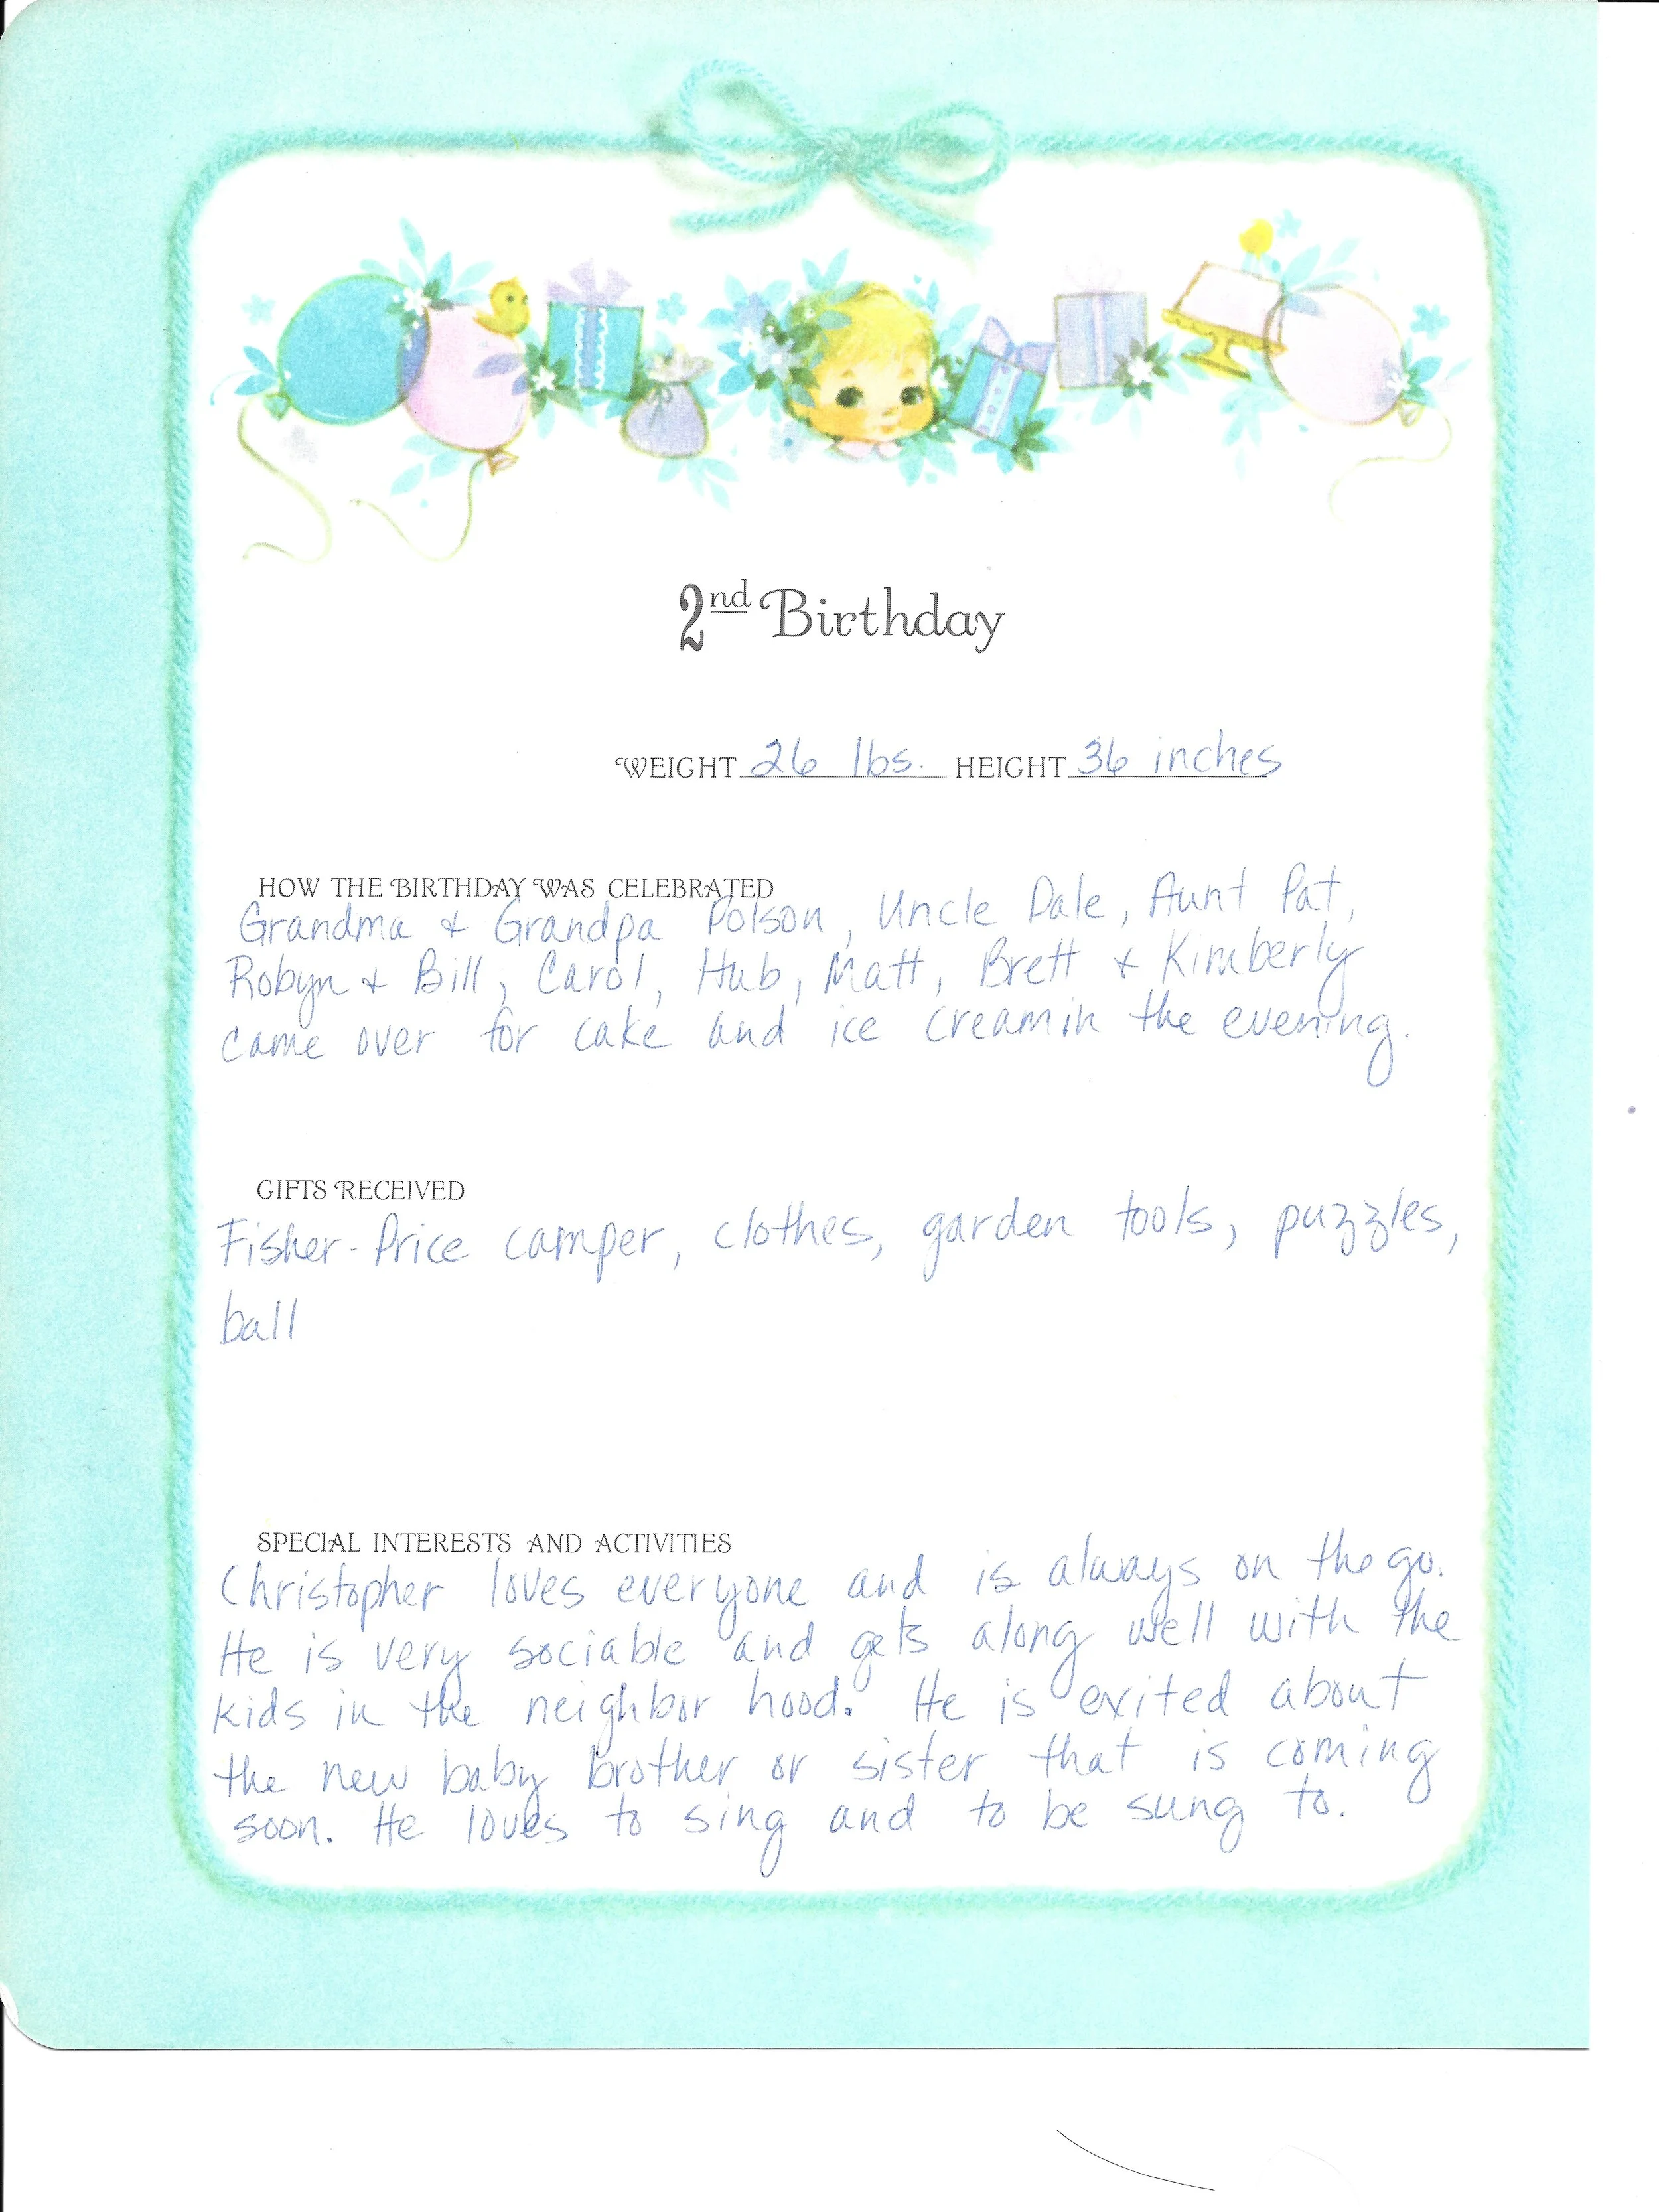 2nd Birthday
WEIGHT 26 lbs. HEIGHT 36 inches
HOW THE BIRTHDAY WAS CELEBRATED
Grandma & Grandpa Polson, Uncle Dale, Aunt Pat,
Robyn & Bill, Carol, Hub, Matt, Brett & Kimberly
came over for cake and ice cream in the evening.
GIFTS RECEIVED
Fisher-Price camper, clothes, garden tools, puzzles,
ball
SPECIAL INTERESTS AND ACTIVITIES
Christopher loves everyone and is always on the go.
He is very sociable and gets along well with the
kids in the neighbor hood. He is exited about
the new baby brother or sister that is coming
soon. He loves to sing and to be sung to.